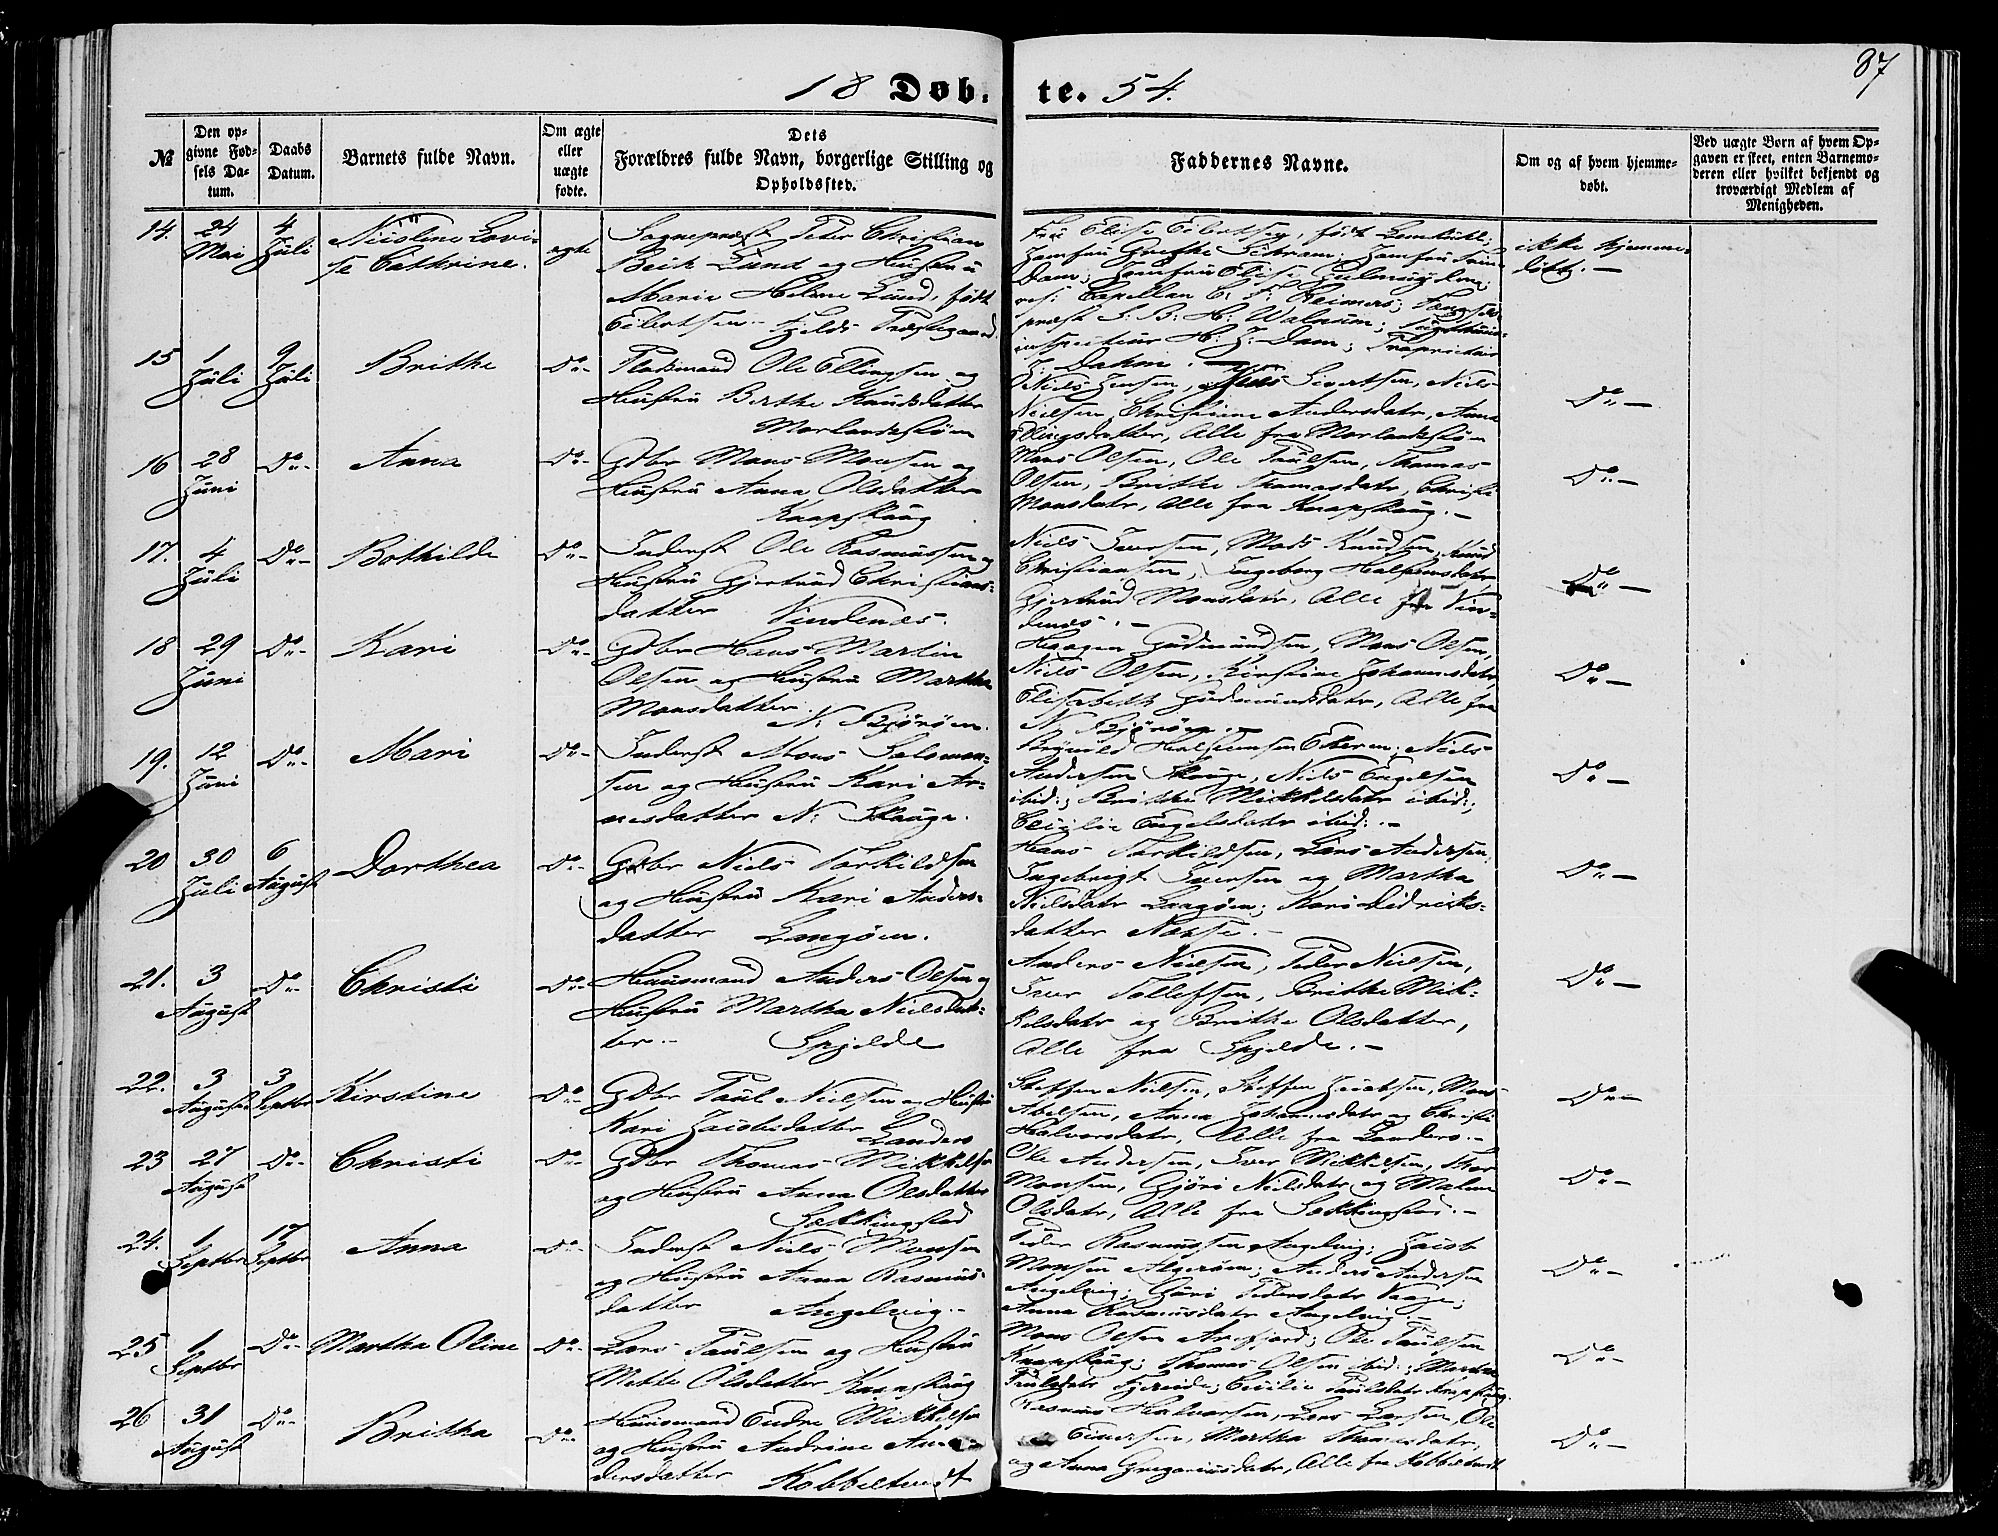 87
18 Døb. te. 54.
№
Den op-
givne Fød-
sels Da-
tum.
Daabs
Datum.
Barnets fulde Navn.
Om ægte
eller
uægte
fødte.
Dets
Forældres fulde Navn, borgerlige Stilling og
Opholdssted.
Faddernes Navne.
Om og af hvem hjemme-
døbt.
Ved uægte Børn af hvem Op-
gaven er skeet, enten Barnemo-
deren eller hvilket bekjendt og
troværdigt Medlem af
Menigheden.
14. 24 Mai 4 Juli Nicoline Lovi-
se Cathrine. ægte
Sognepræst Peter Christian
Beik Lund og Hustru
Marie Helene Lund, født
Eilertsen Fjelds Præstegaard.
Fru Elise Eilertsen, født
Jomfru Grethe Schram; Jomfru
Dam; Jomfru Elise
Capellan C. F. Reimers;
præst S. B. H. Walnum;
H. J. Dam; Proprietair
J. Dahm.
ikke hjemme-
døbt. —
15 1 Juli 9 Juli Brithe Do-
Pladsmand Ole Ellingsen og
Hustru Berthe Knudsdatter
Morlandstøen
Niels Jensen, Niels Sivertsen, Niels
Nielsen, Christine Andersdatr, Anna
Ellingsdatter, Alle fra Morlandstøen
Do —
16 28 Juni Do- Anna Do-
Gdbr Mons Monsen og
Hustru Anna Olsdatter
Knapskaug
Mons Olsen, Ole Paulsen, Thomas
Olsen, Brithe Thomasdatr, Christi
Monsdatr, Alle fra Knapskaug. —
Do —
17. 4 Juli Do- Bothilde Do-
Inderst Ole Rasmussen og
Hustru Gjertrud Christians-
datter Vindenæs.
Niels Iversen, Mads Knudsen, Knud
Christiansen, Ingeborg
Gjertrud Monsdatr, Alle fra Vin-
denæs. —
Do —
18 29 Juni Do- Kari Do-
Gdbr Hans Martin
Olsen og Hustru Martha
Monsdatter.
N. Bjørøen.
Haagen Gudmundsen, Mons Olsen,
Niels Olsen, Kirstine Johannesdatr,
Elisabeth Gudmundsdatr, Alle fra
N. Bjørøen. —
Do —
19. 12 Juni Do- Mari Do-
Inderst Mons Salomon-
sen og Hustru Kari Ar-
nesdatter N: Skauge.
Niels
Andersen Skauge, Niels Engelsen
ibid:; Brithe Mikkelsdatr ibid:;
Cecilie Engelsdatr ibid:. —
Do —
20 30 Juli 6 August Dorthea Do-
Gdbr Niels Torkildsen
og Hustru Kari Anders-
datter Langøen.
Hans Torkildsen, Lars Andersen,
Ingebregt Iversen og Martha
Nielsdatr Langøen; Kari Didriks-
datter
Do —
21. 3 August Do- Christi Do-
Huusmand Anders Olsen og
Hustru Martha Nielsdat-
ter. — Spjelde
Anders Nielsen, Peder Nielsen,
Iver Tollefsen, Brithe Mik-
kelsdatr og Brithe Olsdatter,
Alle fra Spjelde. —
Do —
22. 3 August 3 Septbr Kirstine Do-
Gdbr Paul Nielsen og Hustru
Kari Jacobsdatter Landerø
Steffen Nielsen, Steffen Jacobsen, Mons
Abelsen, Anna Johannesdatr og Christi
Halvorsdatr, Alle fra Landerø. —
Do —
23 27 August Do- Christi Do-
Gdbr Thomas Mikkelsen
og Hustru Anna Olsdatter
Sekkingstad
Ole Andersen, Iver Mikkelsen,
Monsen, Gjøri Nielsdatr og Malene
Olsdatr, Alle fra Sekkingstad. —
Do —
24. 1 Septbr 17 Septbr Anna Do-
Inderst Niels Monsen
og Hustru Anna Rasmus-
datter Angelvig. —
Peder Rasmussen Angelvig; Jacob
Monsen Algerøen; Anders Andersen
Angelvig; Guri Pedersdatr Vaage;
Anna Rasmusdatr Angelvig. —
Do —
25 1 Septbr Do- Martha Oline Do-
Lars Paulsen og Hustru
Mette Olsdatter Knapskaug
Mons Olsen Arefjord; Ole Paulsen
Knapskaug; Thomas Olsen ibid:; Martha
Paulsdatr Fjereide; Cecilie Paulsdatr Knapskaug.
Do —
26 31 August Do- Britha Do-
Huusmand Endre Mikkelsen
og Hustru Andrine An-
dersdatter Kobbeltvedt
Rasmus Halvorsen, Lars Larsen, Ole
Einersen, Martha Thomasdatr,
og Anna Gregoriusdatr, Alle fra Kobbeltvedt
Do —